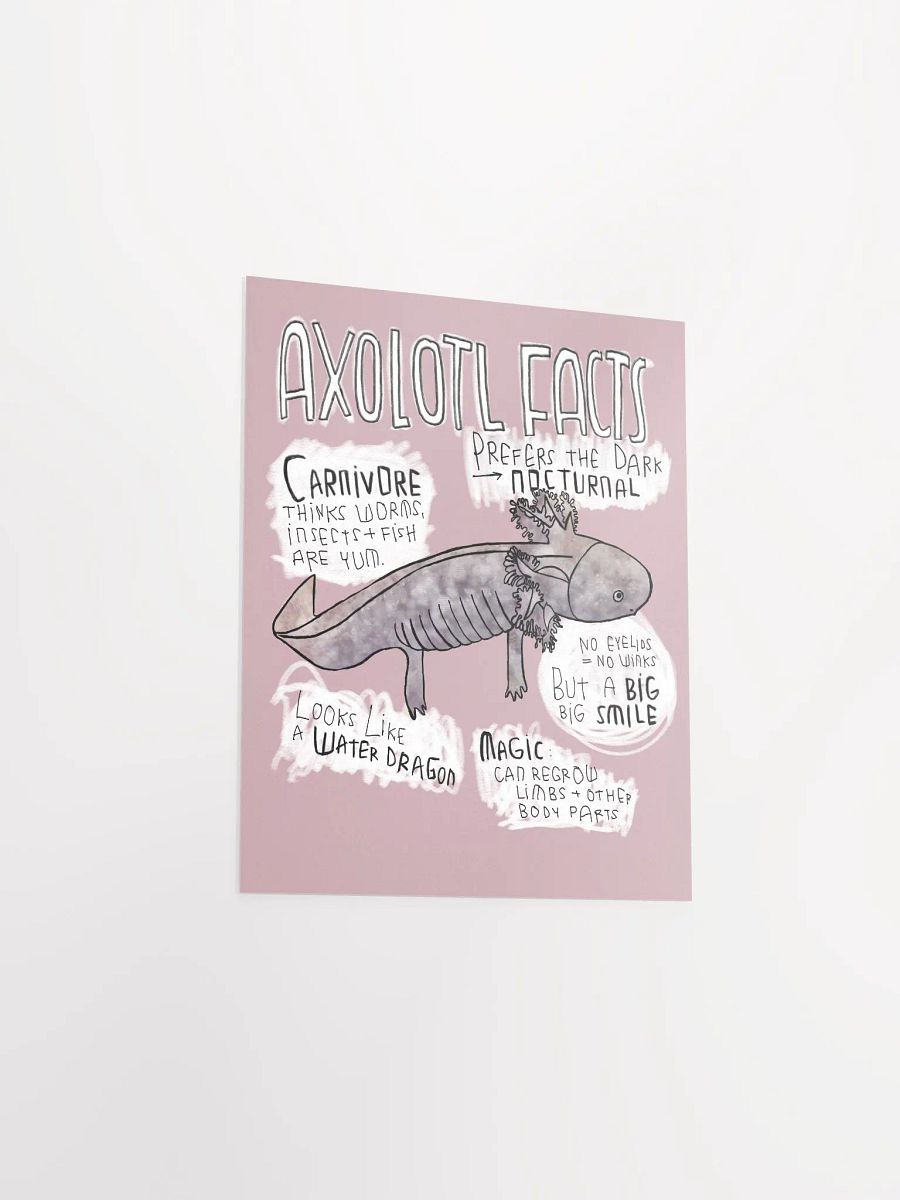 AXOLOTL FACTS
CARNIVORE
THINKS WORMS,
INSECTS + FISH
ARE YUM.
PREFERS THE DARK
→ NOCTURNAL
NO EYELIDS
= NO WINKS
BUT A BIG
BIG SMILE
LOOKS LIKE
A WATER DRAGON
MAGIC:
CAN REGROW
LIMBS + OTHER
BODY PARTS